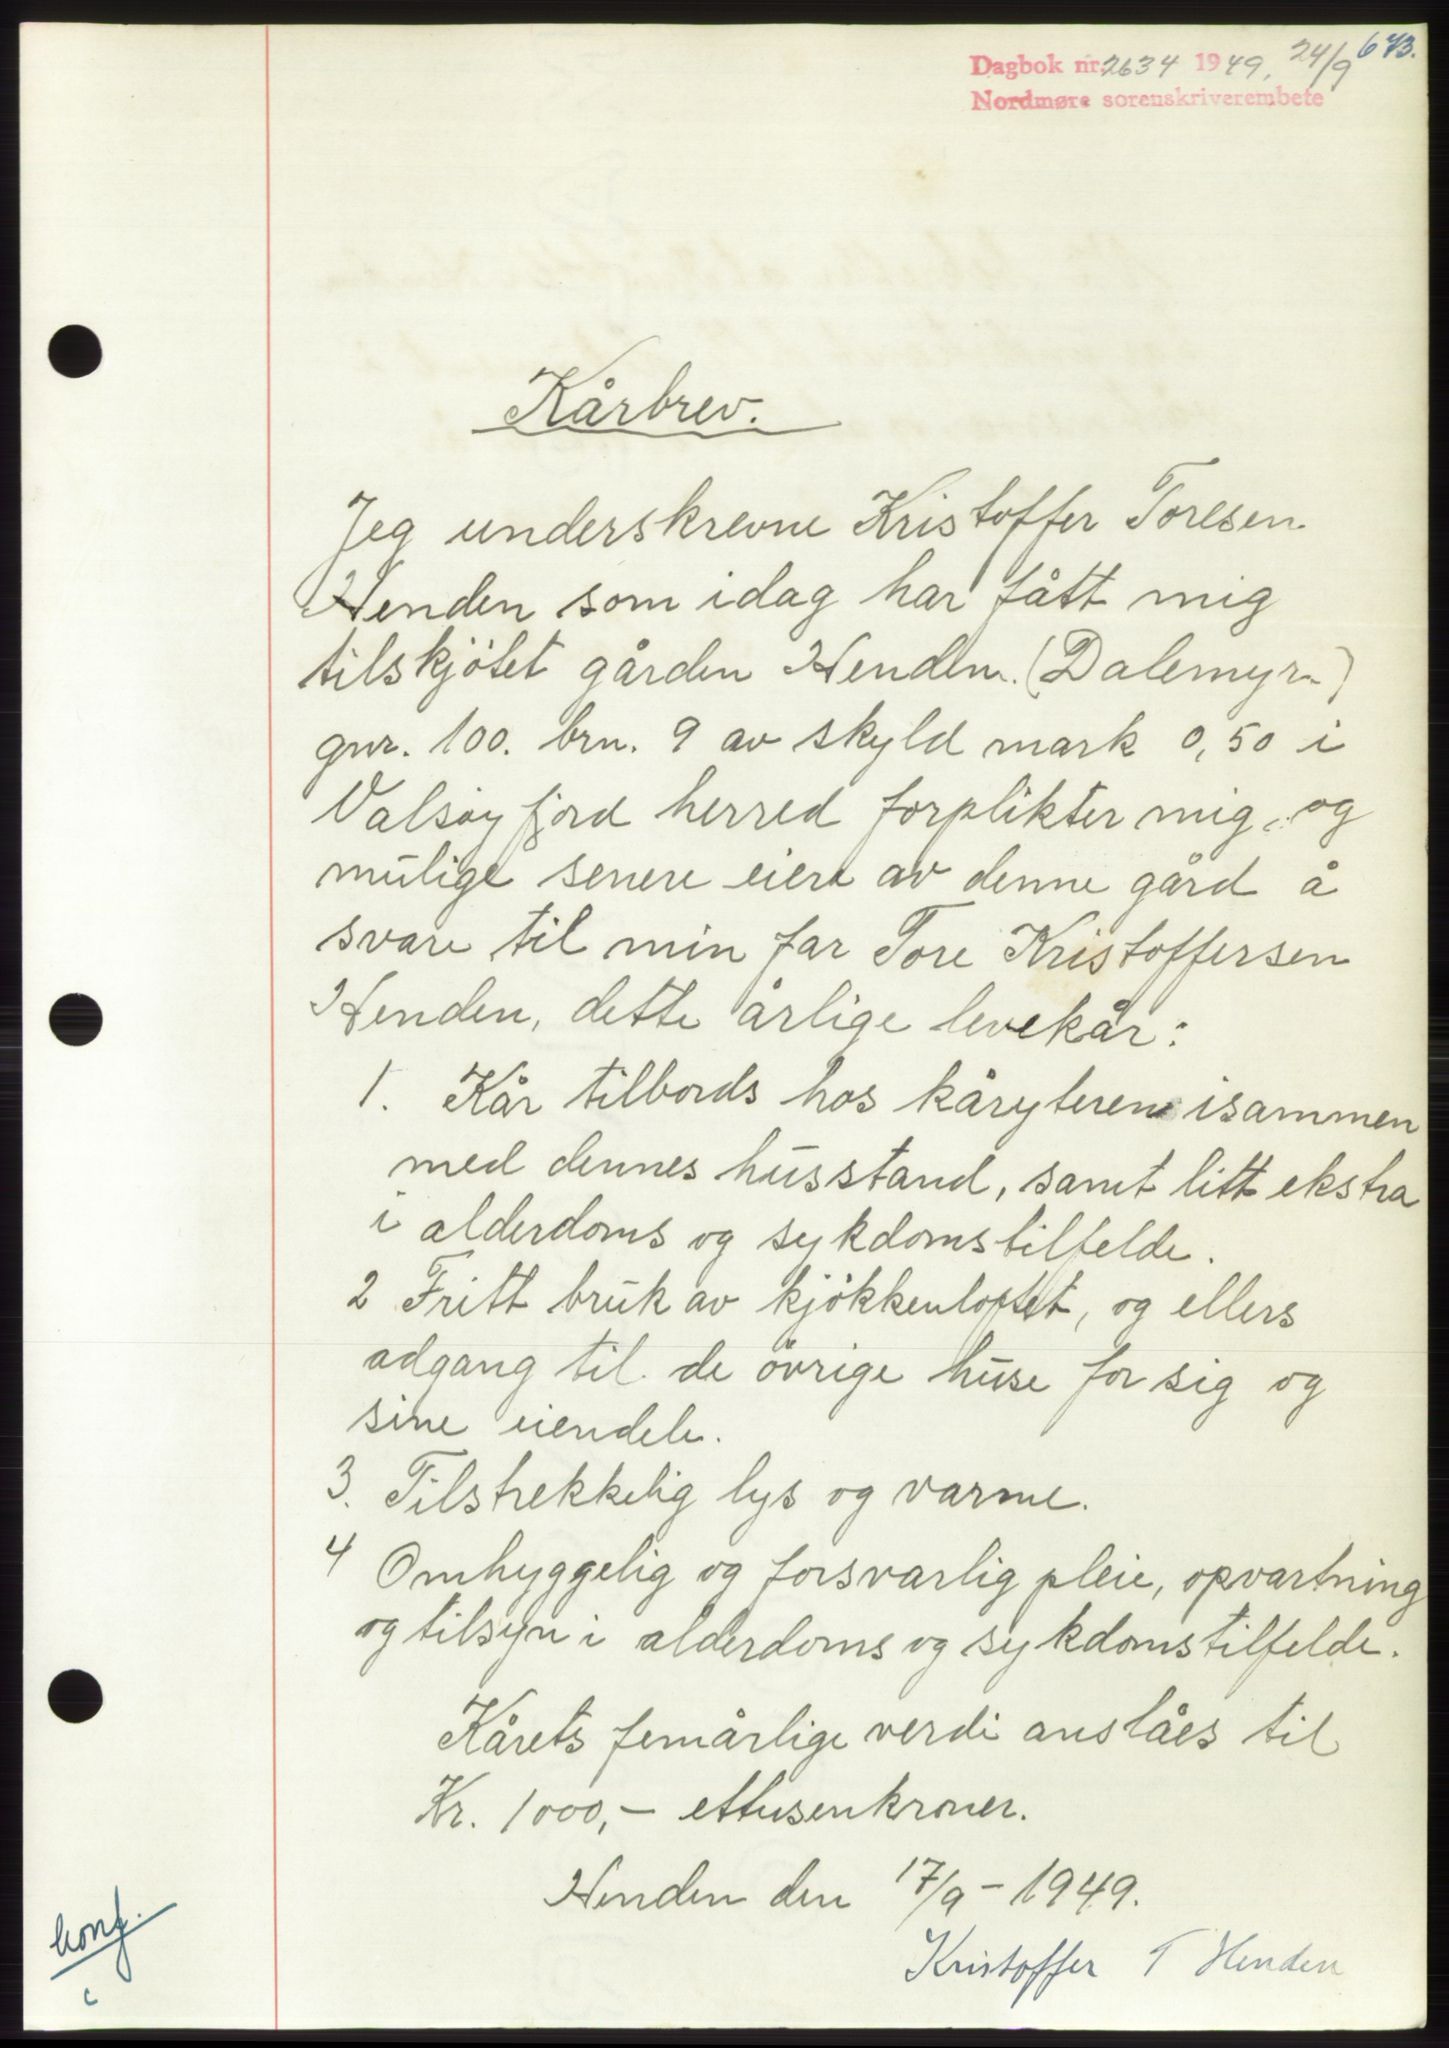 673.
Dagbok nr. 2634 1949, 24/9
Nordmøre sorenskriverembete
Kårbrev.
Jeg underskrevne Kristoffer Toresen
Henden som idag har fått mig
tilskjötet gården Henden. (Dalemyr)
gnr. 100. brn. 9 av skyld mark 0,50 i
Valsöyfjord herred forplikter mig, og
mulige senere eiere av denne gård å
svare til min far Tore Kristoffersen
Henden, dette årlige levekår:
1. Kår tilbords hos kåryteren isammen
med dennes husstand, samt litt ekstra
i alderdoms og sykdomstilfelde.
2 Fritt bruk av kjökkenloftet, og ellers
adgang til de övrige huse for sig og
sine eiendele.
3. Tilstrekkelig lys og varme.
4 Omhyggelig og forsvarlig pleie, opvartning
og tilsyn i alderdoms og sykdomstilfelde.
Kårets femårlige verdi anslåes til
Kr. 1000,- ettusenkroner.
Henden den 17/9-1949.
Kristoffer T Henden
konf.